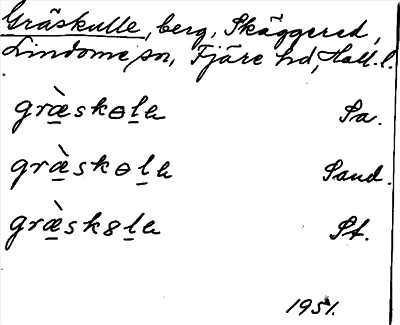 Gräskulle, berg, Skäggered,
Lindome sn, Fjäre hd, Hall. l.
græ̀skɵla Sa.
græ̀skɵla Sand.
græ̀sk8la St.
1951.